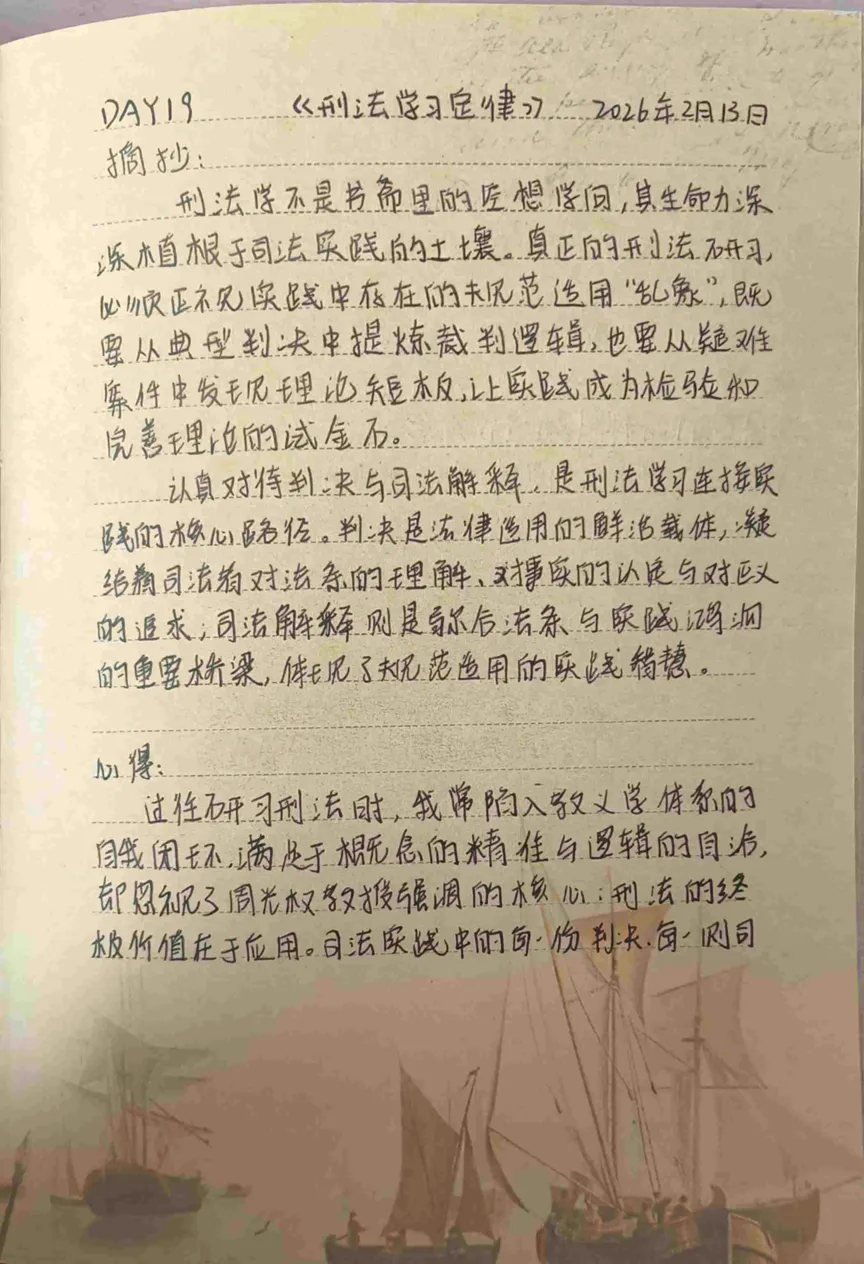 DAY19 《刑法学习定律》 2026年2月13日
摘抄：
刑法学不是书斋里的空想学问，其生命力深
深植根于司法实践的土壤。真正的刑法研习，
必须正视实践中存在的规范适用“乱象”，既
要从典型判决中提炼裁判逻辑，也要从疑难
案件中发现理论短板，让实践成为检验和
完善理论的试金石。
认真对待判决与司法解释，是刑法学习连接实
践的核心路径。判决是法律适用的鲜活载体，凝
结着司法者对法条的理解、对事实的认定与对正义
的追求；司法解释则是弥合法条与实践鸿沟
的重要桥梁，体现了规范适用的实践智慧。
心得：
过往研习刑法时，我常陷入教义学体系的
自我闭环，满足于概念的精准与逻辑的自洽，
却忽视了周光权教授强调的核心：刑法的终
极价值在于应用。司法实践中的每一份判决、每一则司